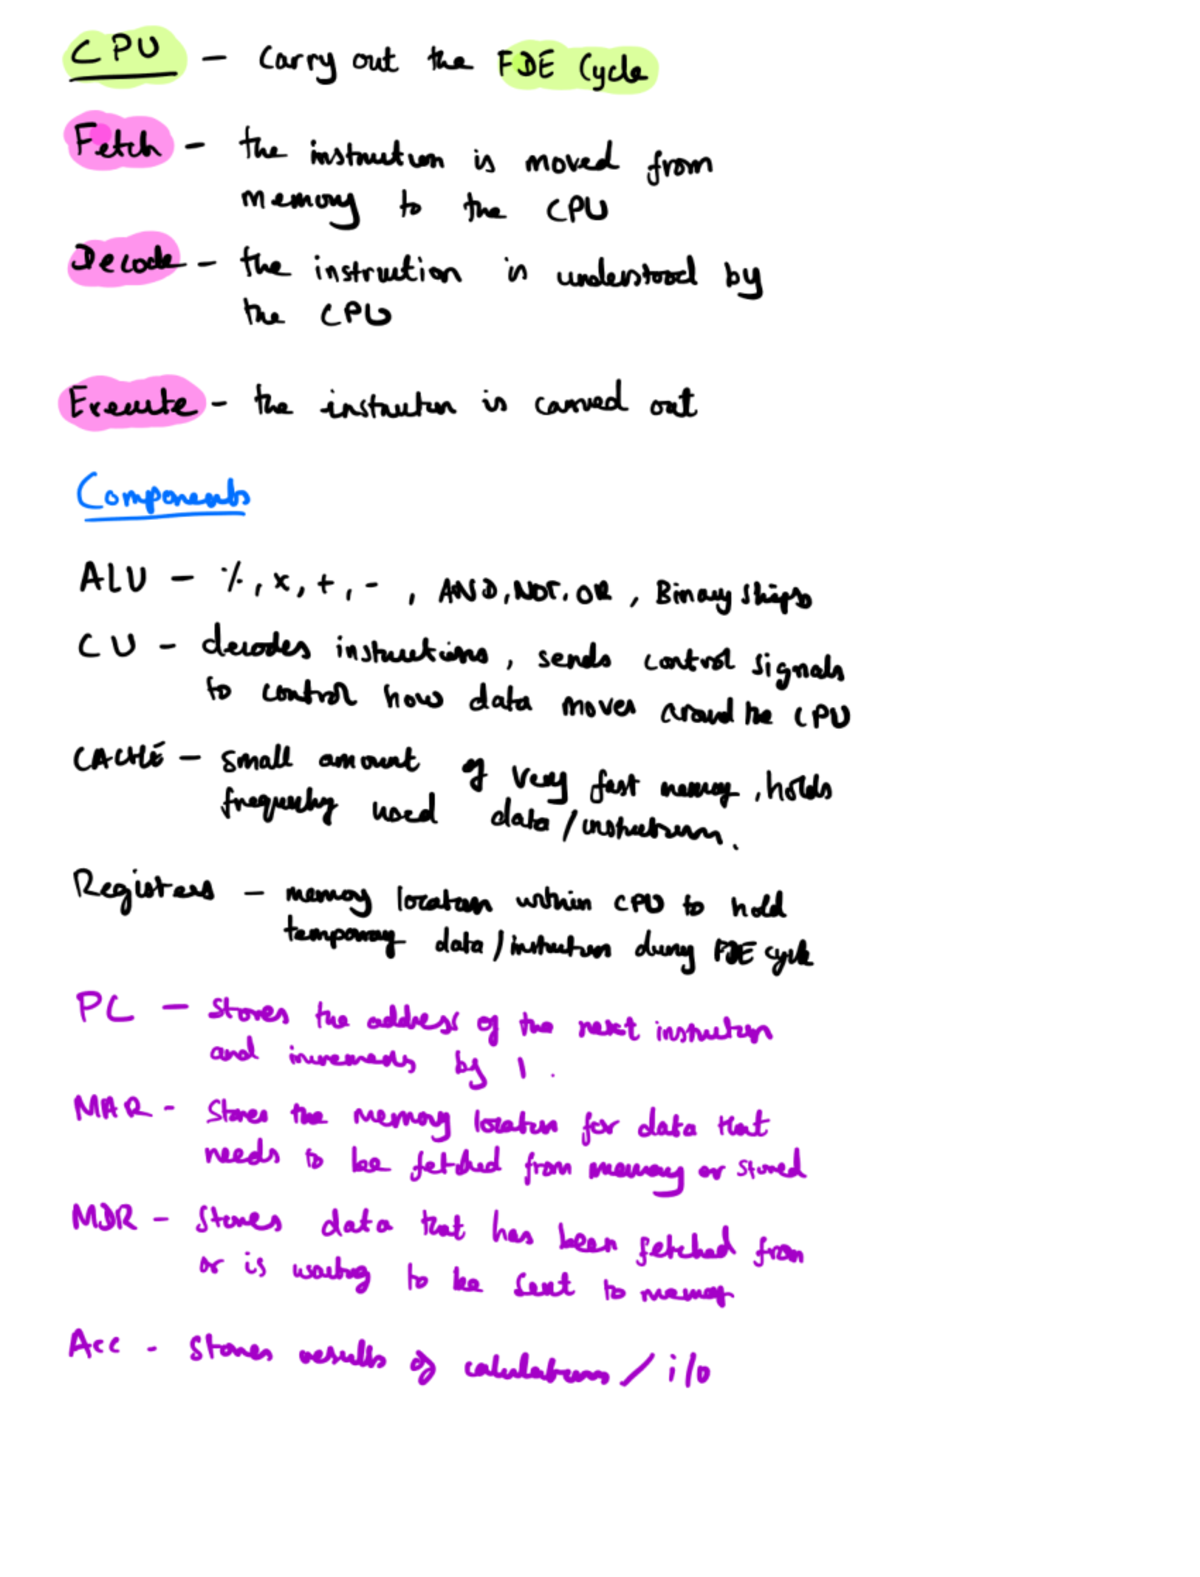 CPU - Carry out the FDE Cycle
Fetch - the instruction is moved from
memory to the CPU
Decode - the instruction is understood by
the CPU
Execute - the instruction is carried out
Components
ALU - %, x, +, -, AND, NOT, OR, Binary
CU - decodes instructions, sends control signals
to control how data moves around the CPU
CACHE - small amount of very fast memory, holds
frequently used data/instructions.
Registers - memory location within CPU to hold
temporary data/instruction during FDE cycle
PC - stores the address of the next instruction
and increments by 1.
MAR - stores the memory location for data that
needs to be fetched from memory or stored
MDR - stores data that has been fetched from
or is waiting to be sent to memory
Acc - stores results of calculations / i/o